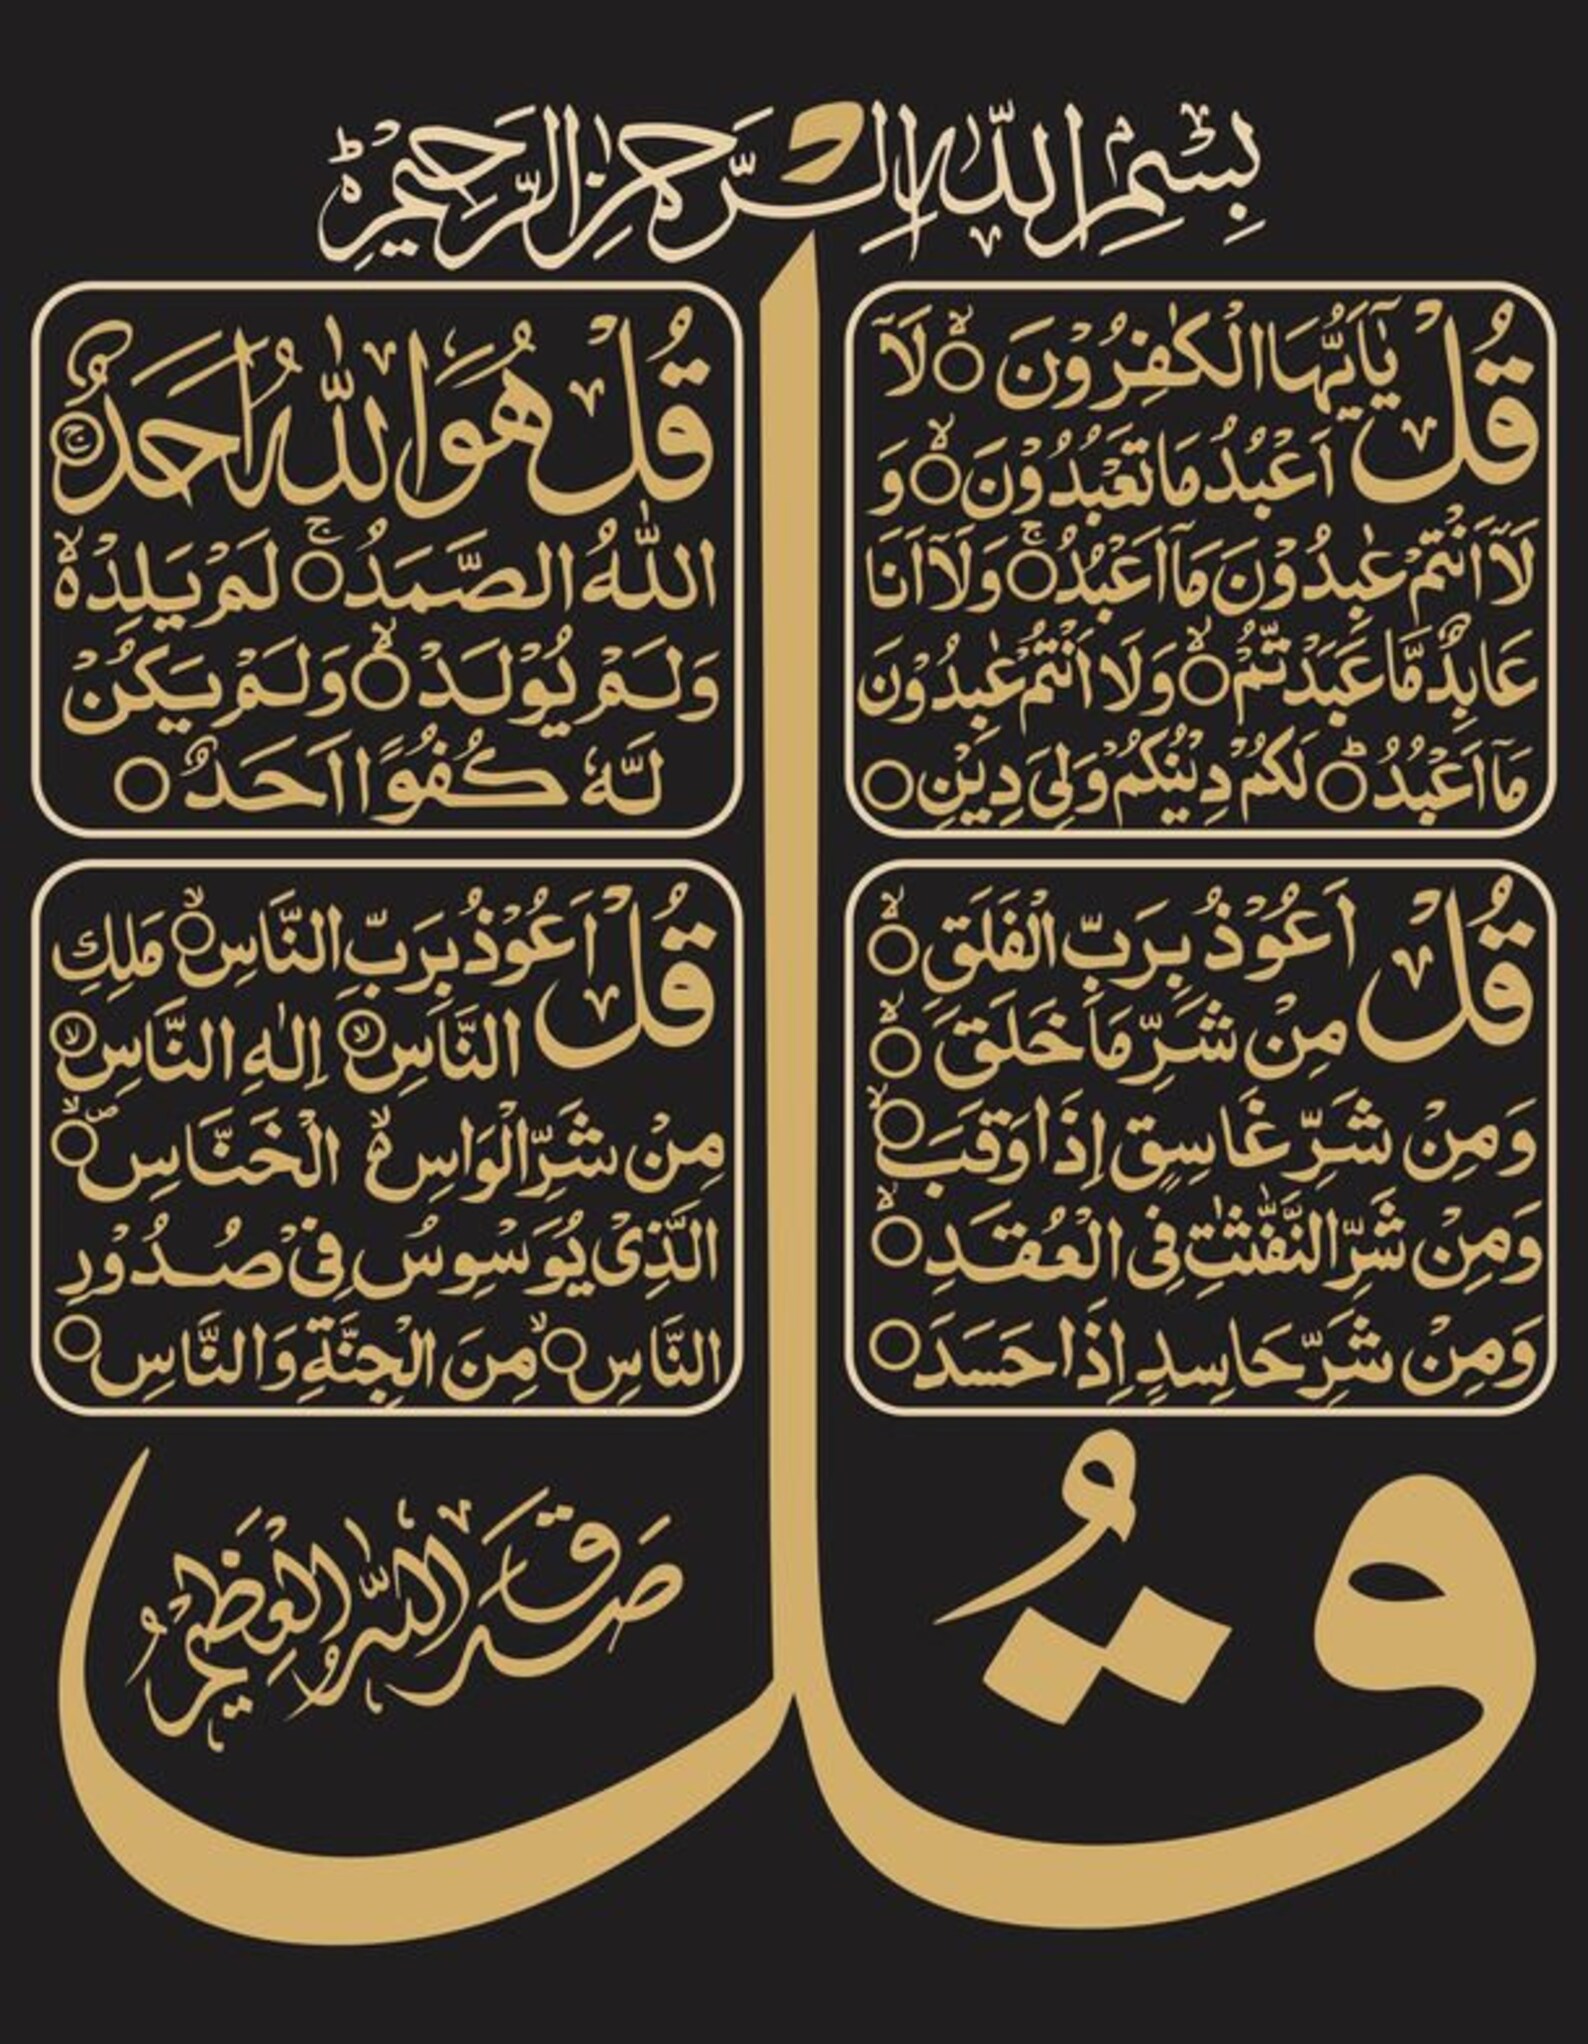 بِسْمِ اللّٰهِ الرَّحْمٰنِ الرَّحِيْمِ
قُلْ يٰٓاَيُّهَا الْكٰفِرُوْنَ ۙ لَآ
اَعْبُدُ مَا تَعْبُدُوْنَ ۙ وَ
لَآ اَنْتُمْ عٰبِدُوْنَ مَآ اَعْبُدُ ۚ وَلَآ اَنَا
عَابِدٌ مَّا عَبَدْتُّمْ ۙ وَلَا اَنْتُمْ عٰبِدُوْنَ
مَآ اَعْبُدُ ؕ لَكُمْ دِيْنُكُمْ وَلِيَ دِيْنِ
قُلْ هُوَ اللّٰهُ اَحَدٌ ۚ
اَللّٰهُ الصَّمَدُ ۚ لَمْ يَلِدْ ۙ
وَلَمْ يُوْلَدْ ۙ وَلَمْ يَكُنْ
لَّهٗ كُفُوًا اَحَدٌ
قُلْ اَعُوْذُ بِرَبِّ الْفَلَقِ ۙ
مِنْ شَرِّ مَا خَلَقَ ۙ
وَمِنْ شَرِّ غَاسِقٍ اِذَا وَقَبَ ۙ
وَمِنْ شَرِّ النَّفّٰثٰتِ فِى الْعُقَدِ ۙ
وَمِنْ شَرِّ حَاسِدٍ اِذَا حَسَدَ
قُلْ اَعُوْذُ بِرَبِّ النَّاسِ ۙ مَلِكِ
النَّاسِ ۙ اِلٰهِ النَّاسِ ۙ
مِنْ شَرِّ الْوَاسِ ۙ الْخَنَّاسِ ۙ
الَّذِىْ يُوَسْوِسُ فِىْ صُدُوْرِ
النَّاسِ ۙ مِنَ الْجِنَّةِ وَالنَّاسِ
قُل
صَدَقَ اللّٰهُ الْعَظِيْمُ